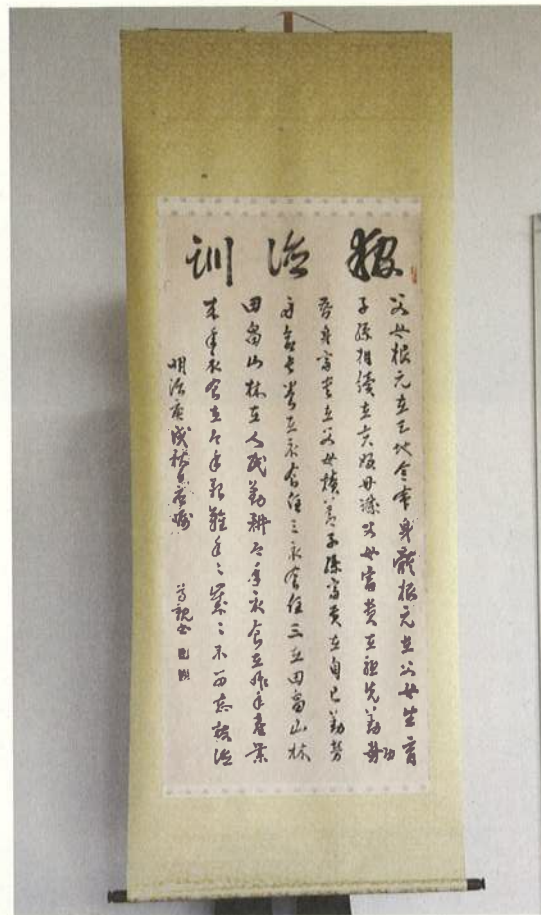 報徳訓
父母根元在天地令命身體根元在父母生育
子孫相續在夫婦丹誠父母富貴在祖先勤功
吾身富貴在父母積善子孫富貴在自己勤勞
身命長養在衣食住三衣食住三在田畠山林
田畠山林在人民勤耕今年衣食在昨年産業
来年衣食在今年艱難年々歳々不可忘報徳
明治庚戌秋日應嘱 尊親書